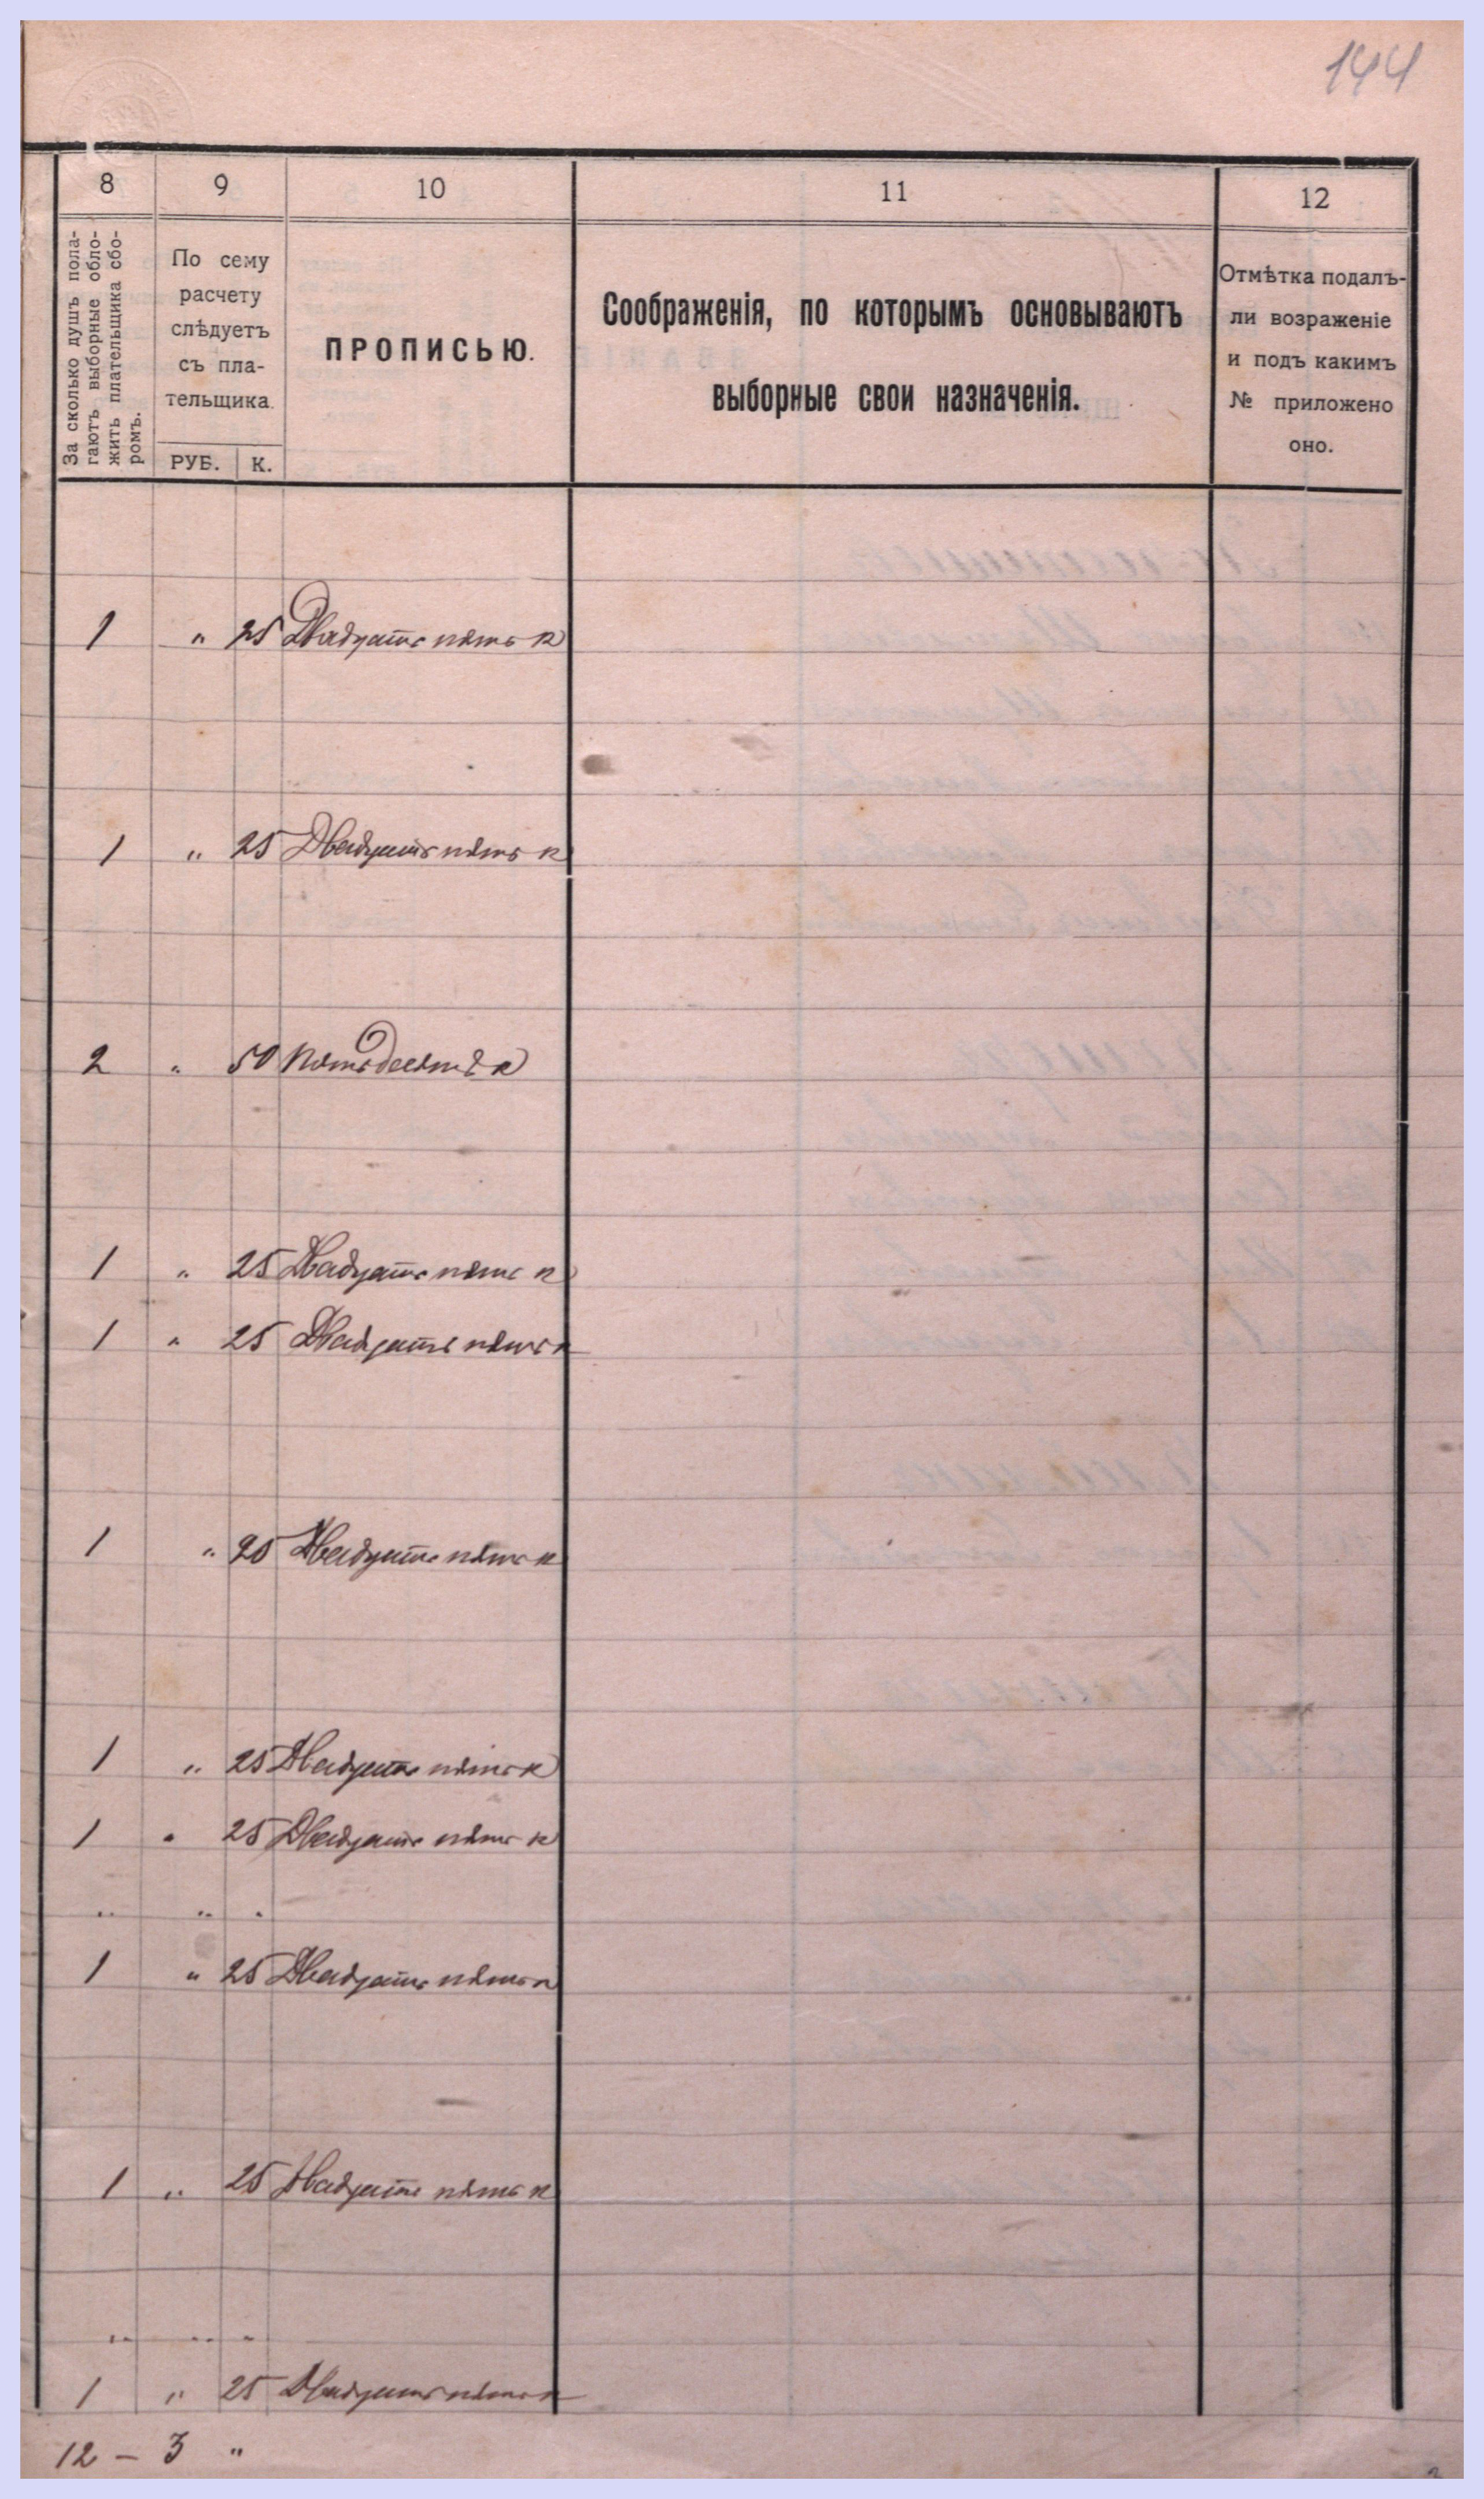 144
8 9 10 11 12
За сколько душъ пола-
гаютъ выборные обло-
жить плательщика сбо-
ромъ.
По сему
расчету
слѣдуетъ
съ пла-
тельщика.
РУБ. К.
ПРОПИСЬЮ.
Соображенія, по которымъ основываютъ
выборные свои назначенія.
Отмѣтка подалъ-
ли возраженіе
и подъ какимъ
№ приложено
оно.
1 " 25 Двадцать пять к
1 " 25 Двадцать пять к
2 " 50 Пятьдесят к
1 " 25 Двадцать пять к
1 " 25 Двадцать пять к
1 " 25 Двадцать пять к
1 " 25 Двадцать пять к
1 " 25 Двадцать пять к
" " "
1 " 25 Двадцать пять к
1 " 25 Двадцать пять к
" " "
1 " 25 Двадцать пять к
12 – 3 "